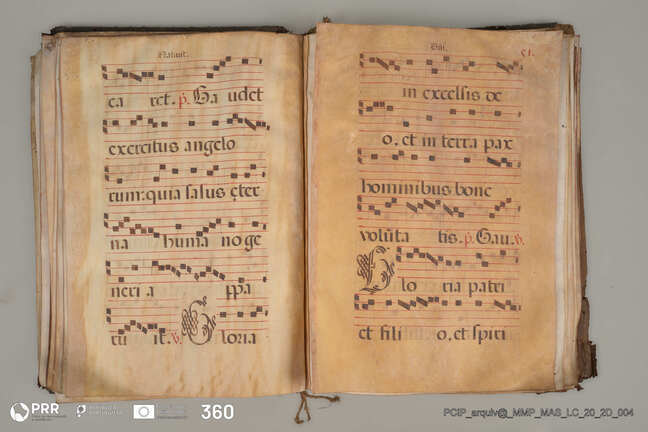 Natiuit.
ca ret. p. Ga udet
exercitus angelo
rum: quia salus eter
na huma no ge
neri a ppa
ru it. v. Gloria
Dni. 51.
in excelsis de
o. et in terra pax
hominibus bone
volūta tis. p. Gau. v.
Glo ria patri
et fili o, et spiri
PRR
REPÚBLICA PORTUGUESA
360
PCIP_arquiv@_MMP_MAS_LC_20_2D_004